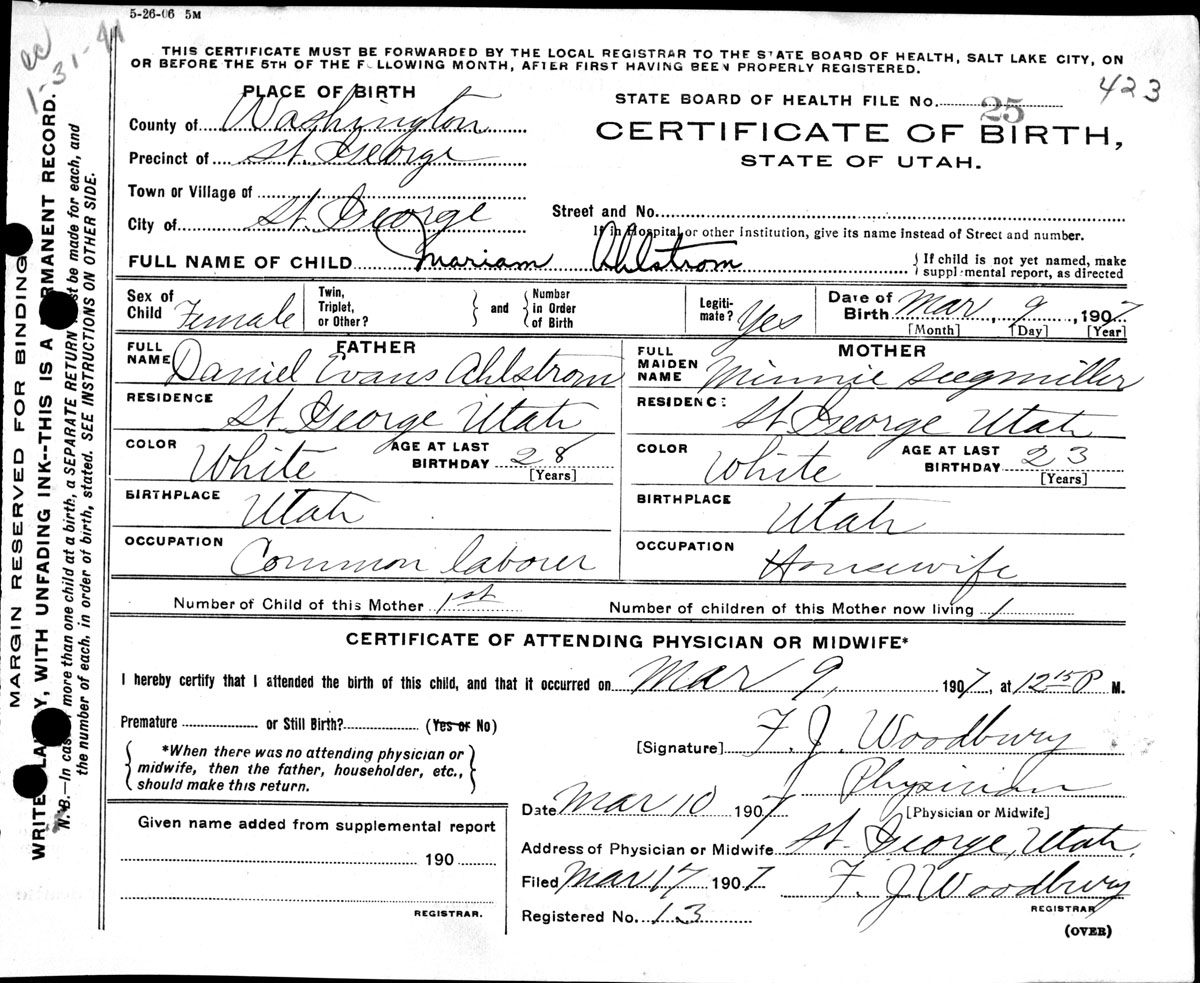 5-26-06 5M
THIS CERTIFICATE MUST BE FORWARDED BY THE LOCAL REGISTRAR TO THE STATE BOARD OF HEALTH, SALT LAKE CITY, ON
OR BEFORE THE 5TH OF THE FOLLOWING MONTH, AFTER FIRST HAVING BEEN PROPERLY REGISTERED.
1-31-41
423
PLACE OF BIRTH
STATE BOARD OF HEALTH FILE No. 25
County of Washington
CERTIFICATE OF BIRTH,
Precinct of St. George
STATE OF UTAH.
Town or Village of
City of St. George
Street and No.
If in Hospital or other Institution, give its name instead of Street and number.
FULL NAME OF CHILD Mariam Ahlstrom { If child is not yet named, make
supplemental report, as directed
Sex of Child Female
Twin, Triplet, or Other? } and { Number in Order of Birth
Legitimate? Yes
Date of Birth Mar, 9, 1907
[Month] [Day] [Year]
FATHER
FULL NAME Daniel Evans Ahlstrom
RESIDENCE St George Utah
COLOR White AGE AT LAST BIRTHDAY 28
[Years]
BIRTHPLACE Utah
OCCUPATION Common laborer
MOTHER
FULL MAIDEN NAME Minnie Seegmiller
RESIDENCE St George Utah
COLOR White AGE AT LAST BIRTHDAY 23
[Years]
BIRTHPLACE Utah
OCCUPATION Housewife
Number of Child of this Mother 1st Number of children of this Mother now living 1
CERTIFICATE OF ATTENDING PHYSICIAN OR MIDWIFE*
I hereby certify that I attended the birth of this child, and that it occurred on Mar 9, 1907, at 12 15 P M.
Premature or Still Birth? (Yes or No)
[Signature] F. J. Woodbury
{ *When there was no attending physician or
midwife, then the father, householder, etc.,
should make this return. }
Physician
[Physician or Midwife]
Date Mar 10 1907
Given name added from supplemental report
190
REGISTRAR.
Address of Physician or Midwife St. George, Utah.
Filed Mar 17 1907 F. J Woodbury
REGISTRAR
Registered No. 13
(OVER)
MARGIN RESERVED FOR BINDING
WRITE PLAINLY, WITH UNFADING INK--THIS IS A PERMANENT RECORD.
N.B.—In case of more than one child at a birth, a SEPARATE RETURN must be made for each, and
the number of each, in order of birth, stated. SEE INSTRUCTIONS ON OTHER SIDE.